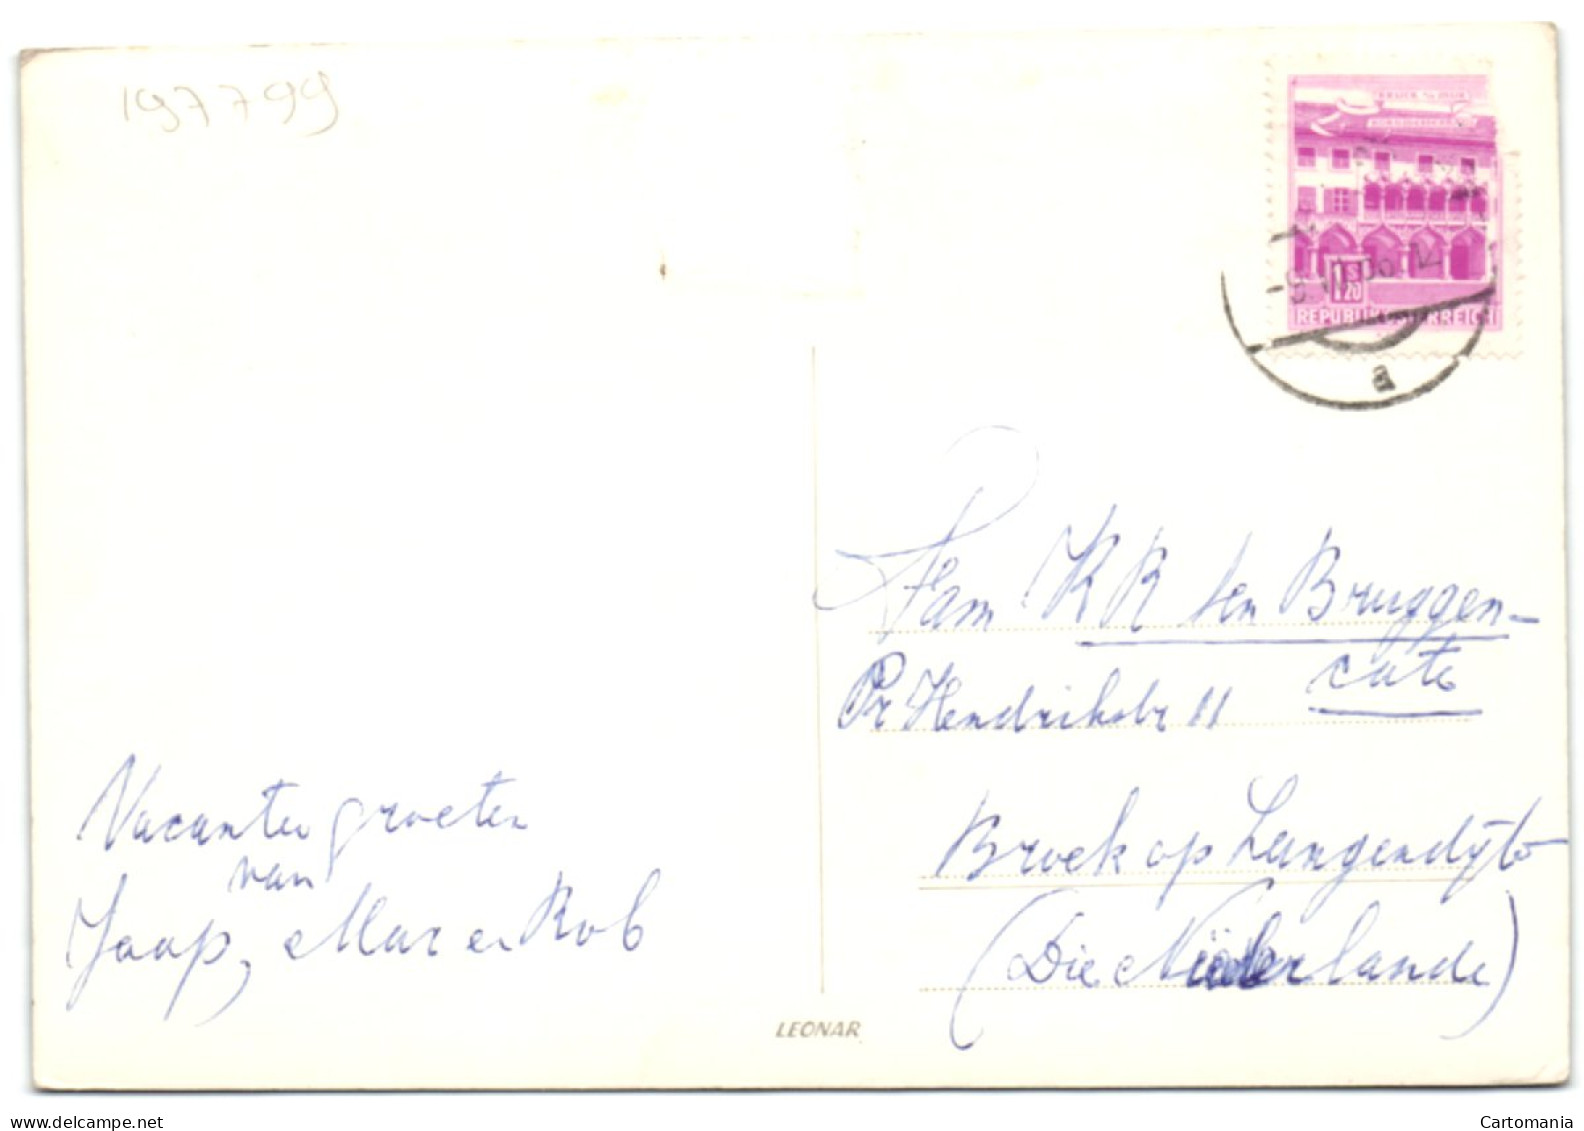 197799
REPUBLIK ÖSTERREICH
1S20
a
Fam KR ten Bruggen-
cate
Pr Hendrikstr 11
Broek op Langendijk
(Die Niederlande)
Vacantie groeten
van
Jaap, Mar en Rob
LEONAR
www.delcampe.net
Cartomania